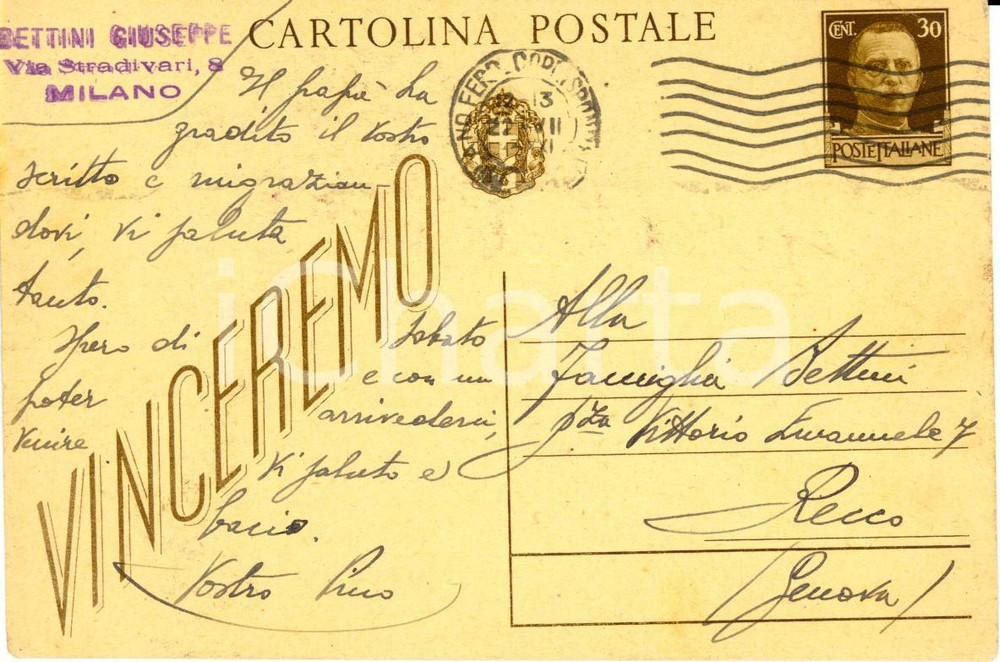 BETTINI GIUSEPPE
Via Stradivari, 8
MILANO
CARTOLINA POSTALE
CENT. 30
POSTE ITALIANE
13
VII
Il papà ha
gradito il vostro
scritto e migrazian
dovi, vi saluta
tanto.
Spero di Sabato
poter e con un
venire arrivederci,
Vi saluto e
bacio.
Vostro Pino
VINCEREMO
Alla
Famiglia Bettini
pza Vittorio Emanuele 7
Recco
(Genova)
iCharta